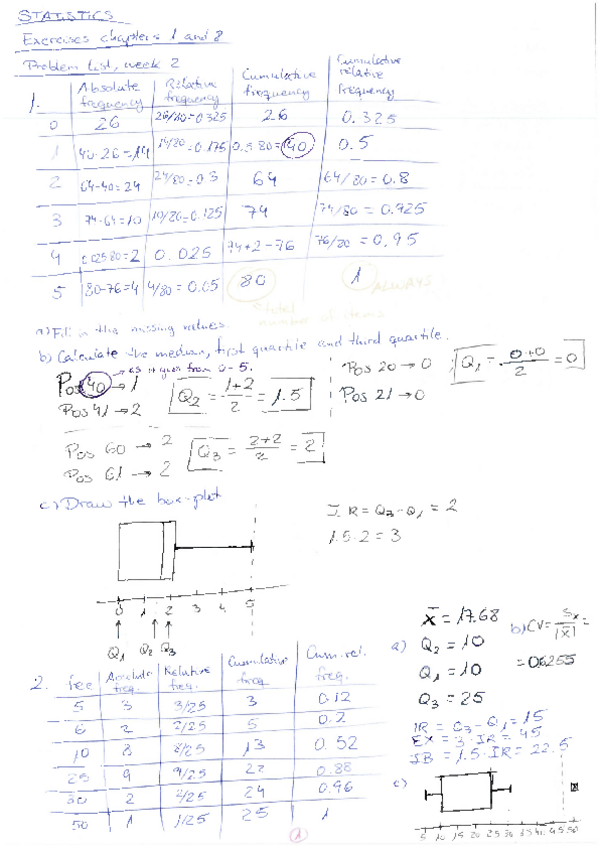 STATISTICS
Exercises chapters 1 and 2
Problem list, week 2
1.
Absolute frequency Relative frequency Cumulative frequency Cumulative relative frequency
0 26 26/80=0.325 26 0.325
1 40-26=14 14/80=0.175 0.5·80=40 0.5
2 64-40=24 24/80=0.3 64 64/80=0.8
3 74-64=10 10/80=0.125 74 74/80=0.925
4 0.025·80=2 0.025 74+2=76 76/80=0.95
5 80-76=4 4/80=0.05 80 1 ALWAYS
total number of items
a) Fill in the missing values.
b) Calculate the median, first quartile and third quartile.
as it goes from 0-5.
Pos 40 → 1
Pos 41 → 2
Q2 = 1+2/2 = 1.5
Pos 20 → 0
Pos 21 → 0
Q1 = 0+0/2 = 0
Pos 60 → 2
Pos 61 → 2
Q3 = 2+2/2 = 2
c) Draw the box-plot
I.R = Q3-Q1 = 2
1.5·2 = 3
0 1 2 3 4 5
Q1 Q2 Q3
2.
fee Absolute freq. Relative freq. Cumulative freq. Cum. rel. freq.
5 3 3/25 3 0.12
6 2 2/25 5 0.2
10 8 8/25 13 0.52
25 9 9/25 22 0.88
30 2 2/25 24 0.96
50 1 1/25 25 1
a)
x̄ = 17.68
Q2 = 10
Q1 = 10
Q3 = 25
b) CV = Sx/|x̄| =
= 0.6255
IR = Q3-Q1 = 15
EX = 3·IR = 45
IB = 1.5·IR = 22.5
c)
5 10 15 20 25 30 35 40 45 50
1